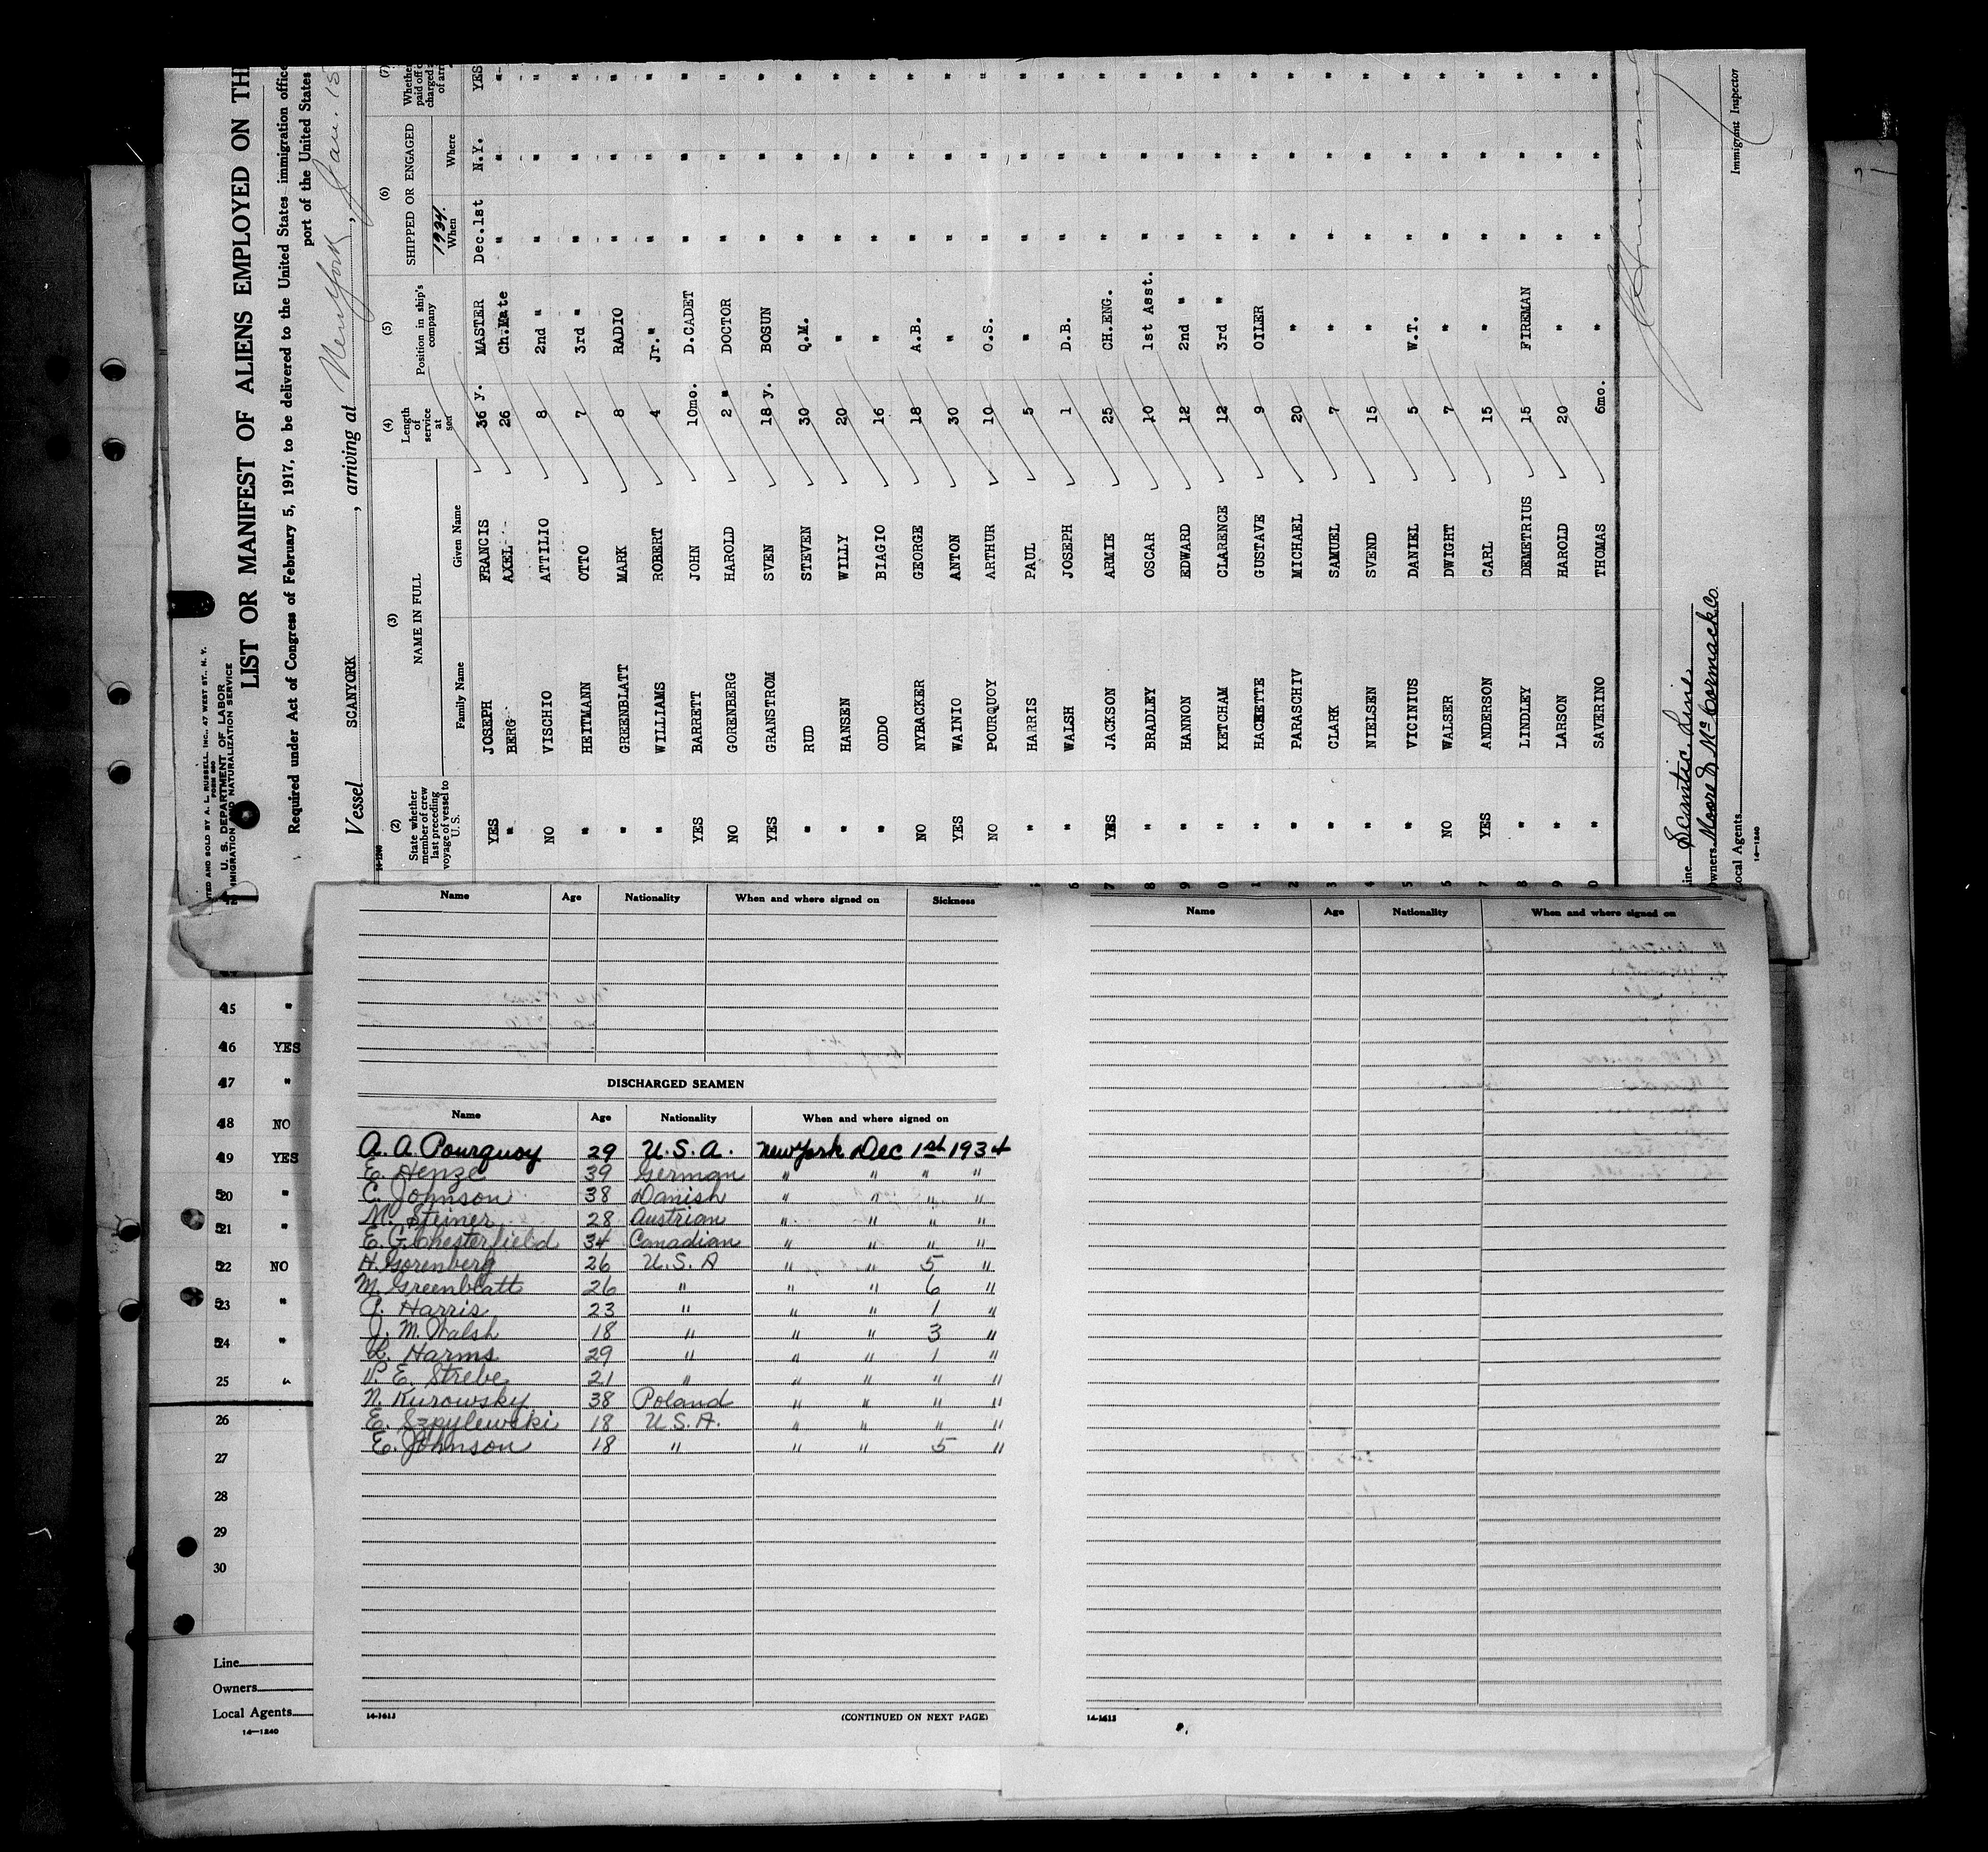 NTED AND SOLD BY A. L. RUSSELL, INC., 47 WEST ST., N. Y.
FORM 680
U. S. DEPARTMENT OF LABOR
IMMIGRATION AND NATURALIZATION SERVICE
LIST OR MANIFEST OF ALIENS EMPLOYED ON TH
Required under Act of Congress of February 5, 1917, to be delivered to the United States immigration office
port of the United States
Vessel SCANYORK, arriving at New York, Jan. 15
14-1240
(2) (3) (4) (5) (6) (7)
State whether member of crew last preceding voyage of vessel to U. S.
NAME IN FULL
Family Name Given Name
Length of service at sea
Position in ship's company
SHIPPED OR ENGAGED
1934.
When Where
Whether paid off o charged a of arri
YES JOSEPH FRANCIS 36 y. MASTER Dec.1st N.Y. YES
" BERG AXEL 26 Ch.Mate " " "
NO VISCHIO ATTILIO 8 2nd " " " "
" HEITMANN OTTO 7 3rd " " " "
" GREENBLATT MARK 8 RADIO " " "
" WILLIAMS ROBERT 4 Jr. " " " "
YES BARRETT JOHN 10mo. D.CADET " " "
NO GORENBERG HAROLD 2 " DOCTOR " " "
YES GRANSTROM SVEN 18 y. BOSUN " " "
" RUD STEVEN 30 Q.M. " " "
" HANSEN WILLY 20 " " " "
" ODDO BIAGIO 16 " " " "
NO NYBACKER GEORGE 18 A.B. " " "
YES WAINIO ANTON 30 " " " "
NO POURQUOY ARTHUR 10 O.S. " " "
" HARRIS PAUL 5 " " " "
6 " WALSH JOSEPH 1 D.B. " " "
7 YES JACKSON ARMIE 25 CH.ENG. " " "
8 " BRADLEY OSCAR 10 1st Asst. " " "
9 " HANNON EDWARD 12 2nd " " " "
0 " KETCHAM CLARENCE 12 3rd " " " "
1 " HACKETTE GUSTAVE 9 OILER " " "
2 " PARASCHIV MICHAEL 20 " " " "
3 " CLARK SAMUEL 7 " " " "
4 " NIELSEN SVEND 15 " " " "
5 " VICINIUS DANIEL 5 W.T. " " "
6 NO WALSER DWIGHT 7 " " " "
7 YES ANDERSON CARL 15 " " " "
8 " LINDLEY DEMETRIUS 15 FIREMAN " " "
9 " LARSON HAROLD 20 " " " "
0 " SAVERINO THOMAS 6mo. " " " "
Line Scantic Line
Owners Moore & McCormack Co.
Local Agents
14-1240
Immigrant Inspector
Name Age Nationality When and where signed on Sickness
Name Age Nationality When and where signed on
DISCHARGED SEAMEN
Name Age Nationality When and where signed on
A. A. Pourquoy 29 U.S.A. New York Dec 1st 1934
E. Henze 39 German " " " "
C. Johnson 38 Danish " " " "
M. Steiner 28 Austrian " " " "
E. G. Chesterfield 34 Canadian " " " "
H. Gorenberg 26 U.S.A " " 5 "
M. Greenblatt 26 " " " 6 "
P. Harris 23 " " " 1 "
J. M. Walsh 18 " " " 3 "
L. Harms 29 " " " 1 "
V. E. Strebe 21 " " " " "
N. Kurowsky 38 Poland " " " "
E. Szpylewski 18 U.S.A. " " " "
E. Johnson 18 " " " 5 "
14-1613 (CONTINUED ON NEXT PAGE) 14-1613
15 "
16 YES
17 "
18 NO
19 YES
20 "
21 "
22 NO
23 "
24 "
25 "
26
27
28
29
30
Line
Owners
Local Agents
14-1240